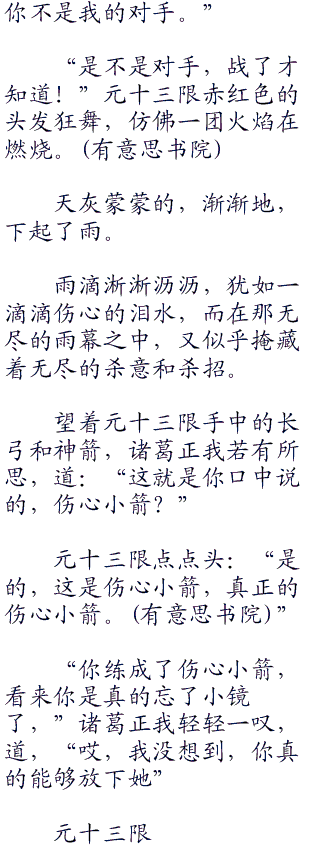 你不是我的对手。”
“是不是对手，战了才
知道！”元十三限赤红色的
头发狂舞，仿佛一团火焰在
燃烧。(有意思书院)
天灰蒙蒙的，渐渐地，
下起了雨。
雨滴淅淅沥沥，犹如一
滴滴伤心的泪水，而在那无
尽的雨幕之中，又似乎掩藏
着无尽的杀意和杀招。
望着元十三限手中的长
弓和神箭，诸葛正我若有所
思，道：“这就是你口中说
的，伤心小箭？”
元十三限点点头：“是
的，这是伤心小箭，真正的
伤心小箭。(有意思书院)”
“你练成了伤心小箭，
看来你是真的忘了小镜
了，”诸葛正我轻轻一叹，
道，“哎，我没想到，你真
的能够放下她”
元十三限